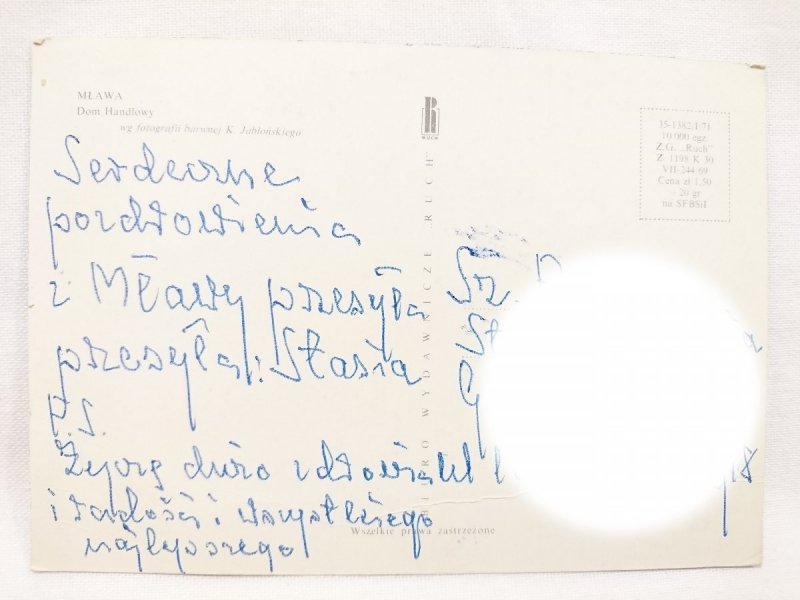 MŁAWA
Dom Handlowy
wg fotografii barwnej K. Jabłońskiego
RUCH
35-1382/I/71
10 000 egz.
Z.G. „Ruch"
Z. 1198 K 30
VII-244 69
Cena zł 1,50
+ 20 gr
na SFBSiI
BIURO WYDAWNICZE „RUCH"
Serdeczne
pozdrowienia
z Mławy przesyła
przesyła: Stasia
P.S.
Życzę dużo zdrowia
i radości i wszystkiego
najlepszego
Sz.
St
G
Wszelkie prawa zastrzeżone